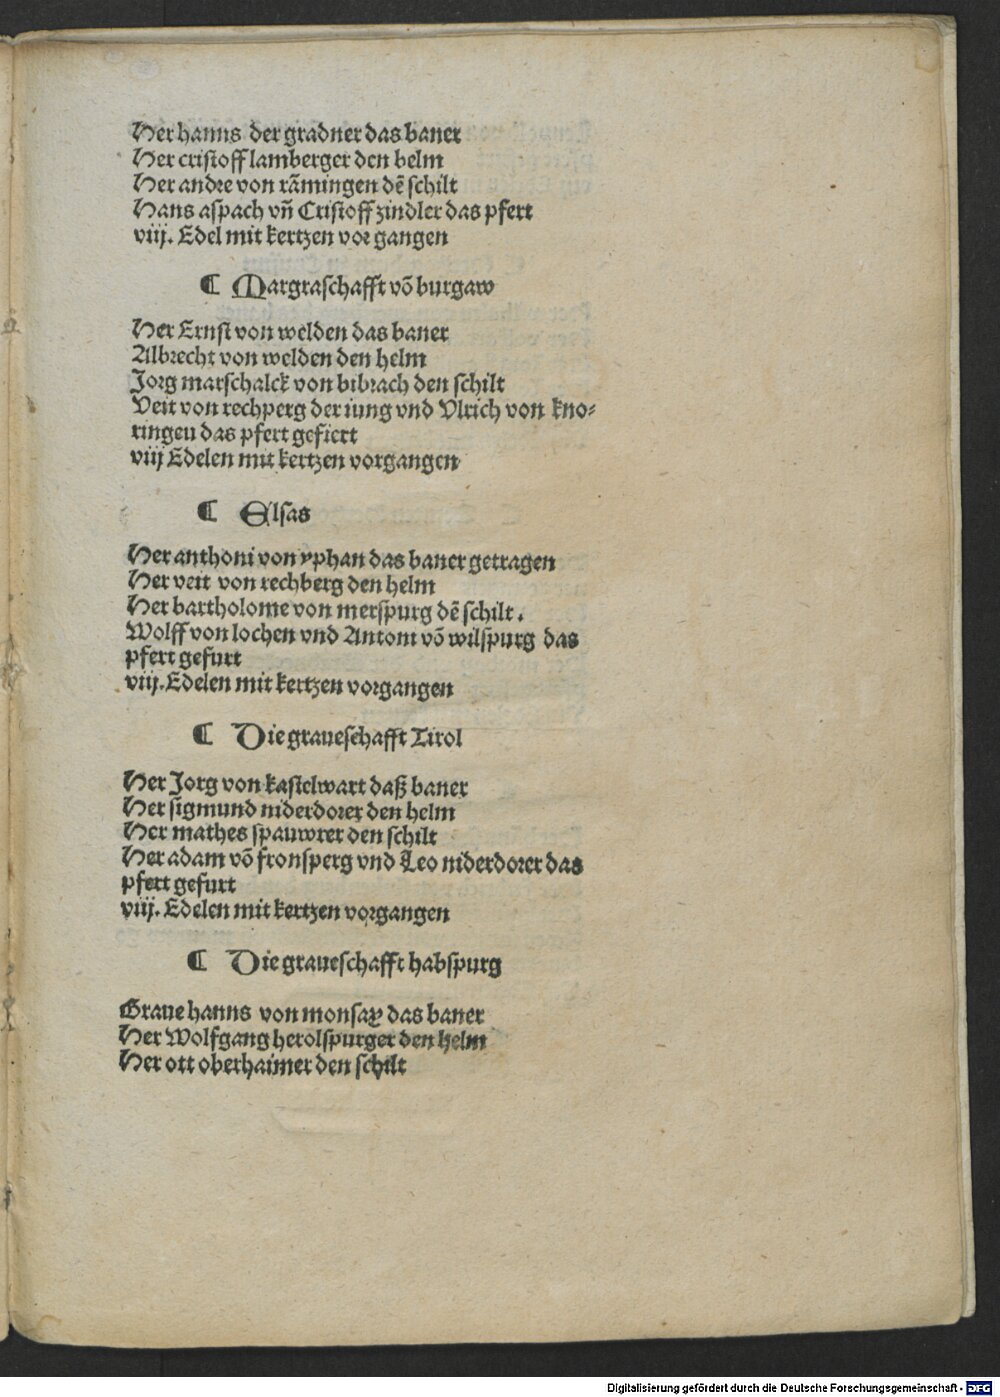 Her hanns der gradner das baner
Her cristoff lamberger den helm
Her andre von rāmingen dē schilt
Hans aspach vn̄ Cristoff zindler das pfert
viij. Edel mit kertzen vor gangen
¶ Margraschafft vō burgaw
Her Ernst von welden das baner
Albrecht von welden den helm
Jorg marschalck von bibrach den schilt
Veit von rechperg der iung vnd Vlrich von kno⸗
ringen das pfert gefiert
viij Edelen mit kertzen vorgangen
¶ Elsas
Her anthoni von yphan das baner getragen
Her veit von rechberg den helm
Her bartholome von merspurg dē schilt.
Wolff von lochen vnd Antoni vō wilspurg das
pfert gefurt
viij. Edelen mit kertzen vorgangen
¶ Die graueschafft Tirol
Her Jorg von kastelwart daß baner
Her sigmund niderdorer den helm
Her mathes spauwrer den schilt
Her adam vō fronsperg vnd Leo niderdorer das
pfert gefurt
viij. Edelen mit kertzen vorgangen
¶ Die graueschafft habspurg
Graue hanns von monsax das baner
Her Wolfgang herolspurger den helm
Her ott oberhaimer den schilt
Digitalisierung gefördert durch die Deutsche Forschungsgemeinschaft - DFG